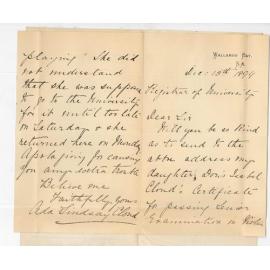 WALLAROO BAY,
S.A.
Dec: 13th 1899
Registrar of University
Dear Sir
Will you be so kind
as to send to the
above address my
daughter, Doris Isabel
Cloud's Certificate
for passing Senior
Examination in Violin
playing" She did
not understand
that she was supposed
to go to the University
for it until too late
on Saturday & she
returned here on Monday
Apologising for causing
you any extra trouble
Believe me
Faithfully yours
Ada Lindsay Cloud